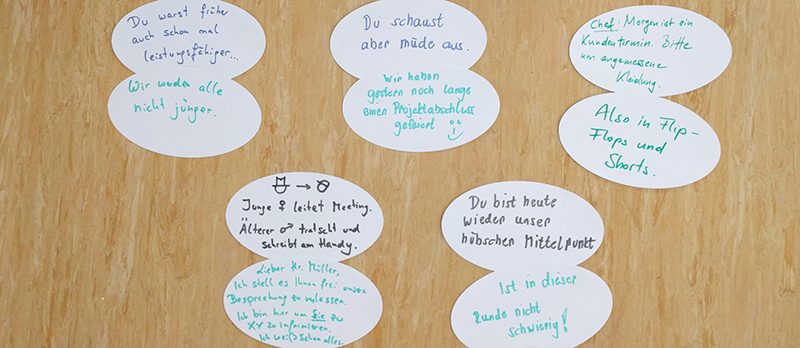 Du warst früher
auch schon mal
leistungsfähiger...
Wir werden alle
nicht jünger.
Du schaust
aber müde aus.
Wir haben
gestern noch lange
einen Projektabschluss
gefeiert
Chef: Morgen ist ein
Kundentermin. Bitte
um angemessene
Kleidung.
Also in Flip-
Flops und
Shorts.
Junge ♀ leitet Meeting.
Älterer ♂ tratscht und
schreibt am Handy.
Lieber Hr. Müller,
Ich stell es Ihnen frei unsere
Besprechung zu verlassen.
Ich bin hier um Sie zu
XY zu informieren.
Ich weiß schon alles.
Du bist heute
wieder unser
hübscher Mittelpunkt
Ist in dieser
Runde nicht
schwierig!